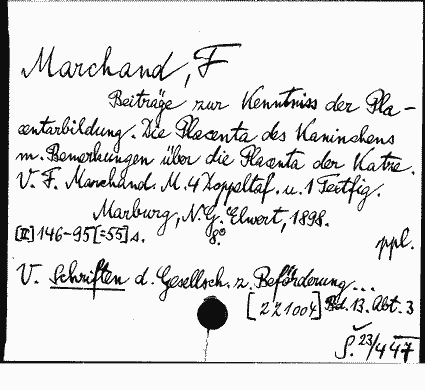 Marchand, F
Beiträge zur Kenntniss der Pla-
centarbildung. Die Placenta des Kaninchens
m. Bemerkungen über die Placenta der Katze.
V. F. Marchand. M. 4 Doppeltaf. u. 1 Textfig.
Marburg, N. G. Elwert, 1898.
[II] 146-95 [=55] s. 8°
ppl.
V. Schriften d. Gesellsch. z. Beförderung...
[221004] Bd. 13. Abt. 3
Š. 23/447